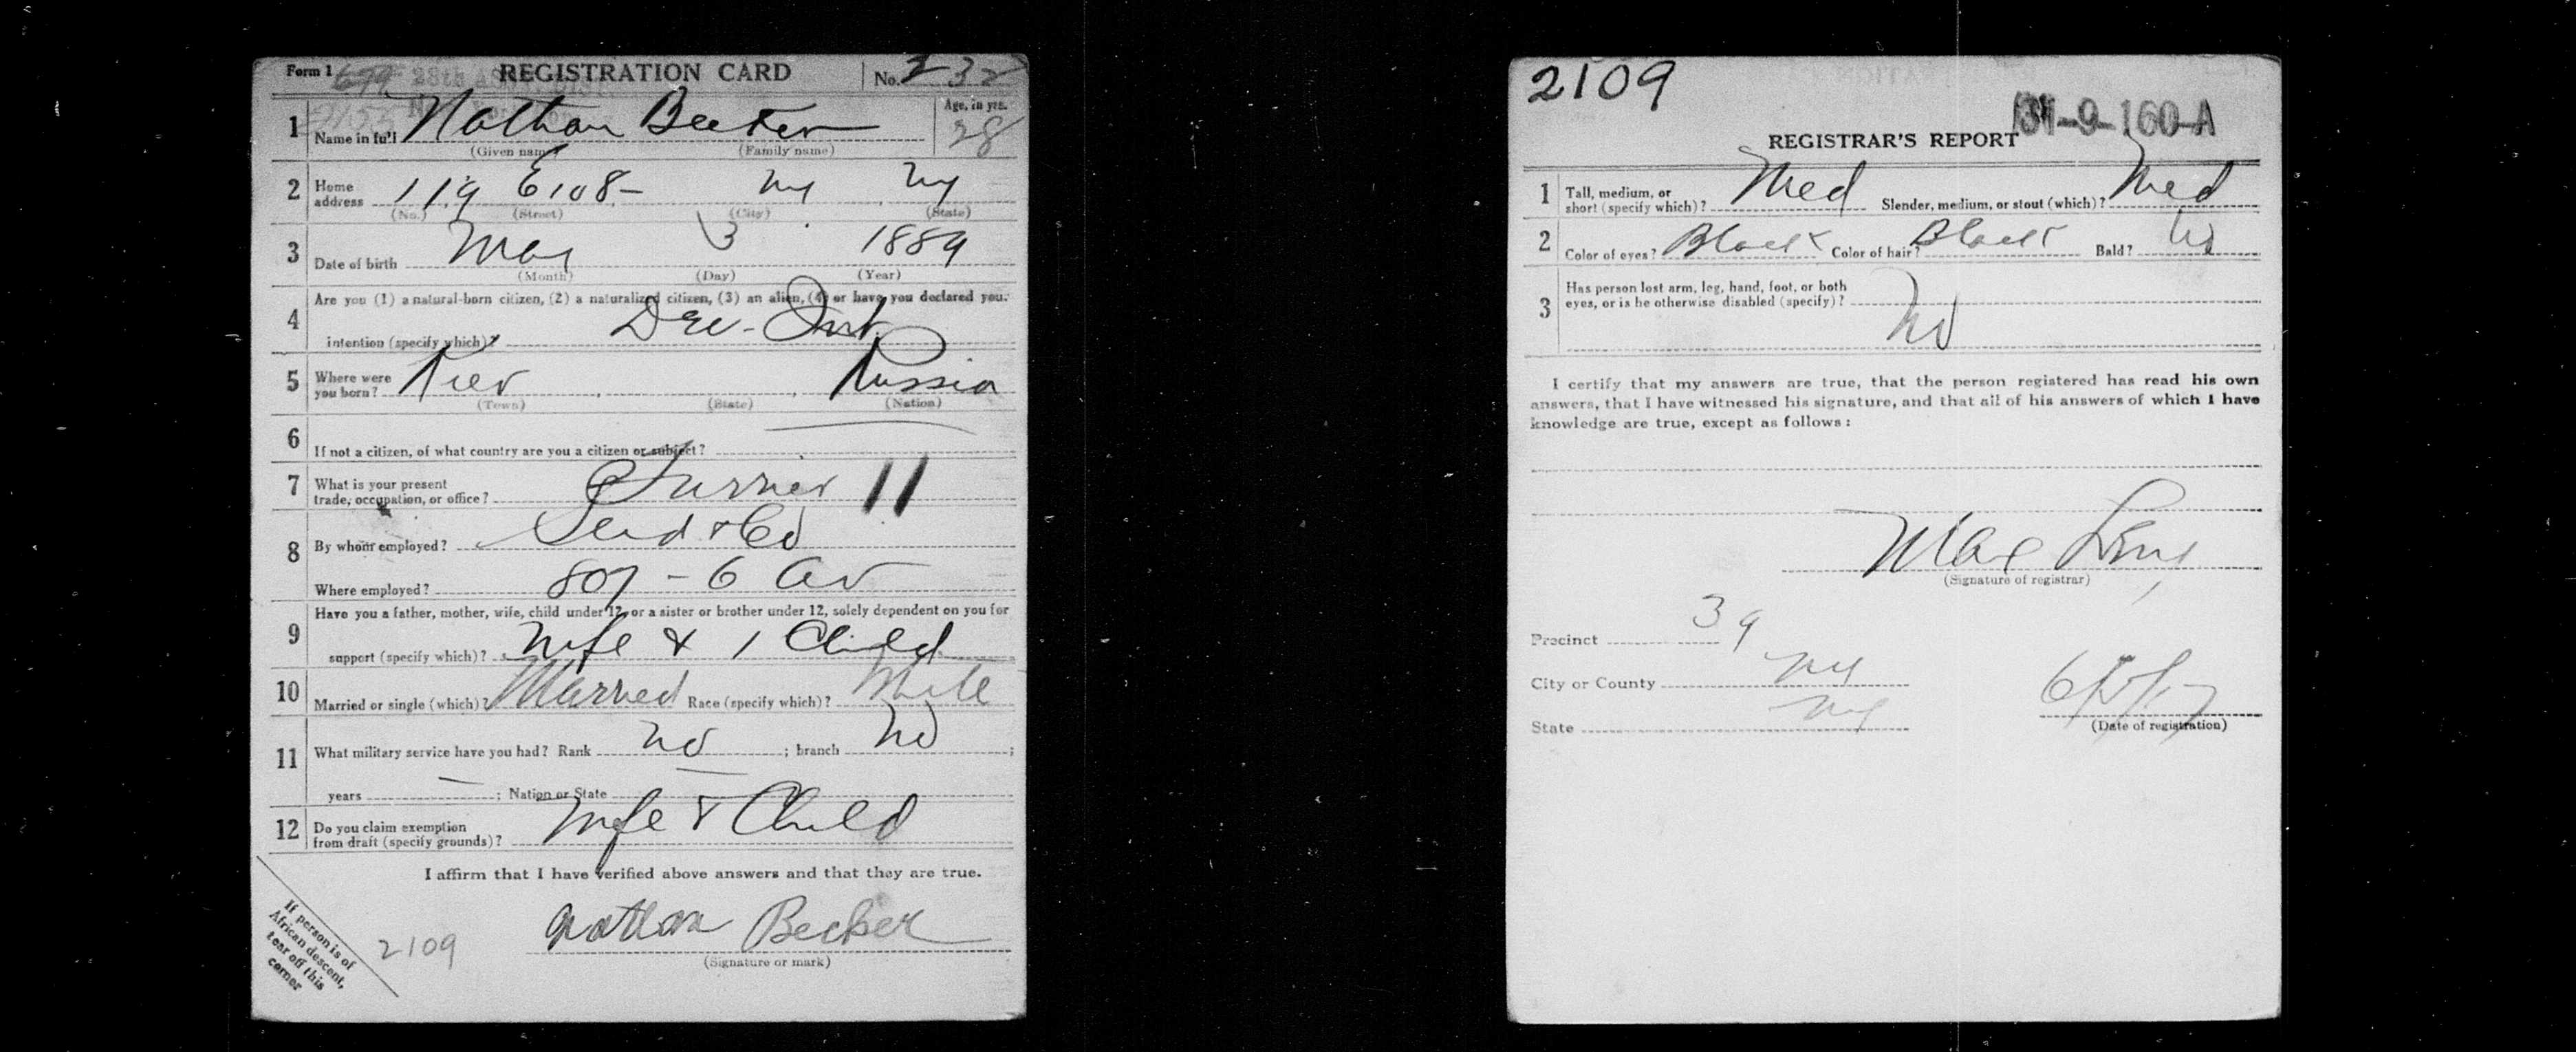 Form 1 REGISTRATION CARD No. 232
1 Name in full Nathan Becker Age, in yrs. 28
(Given name) (Family name)
2 Home address 119 E 108 - NY NY
(No.) (Street) (City) (State)
3 Date of birth Mar 3 1889
(Month) (Day) (Year)
4 Are you (1) a natural-born citizen, (2) a naturalized citizen, (3) an alien, (4) or have you declared your
intention (specify which)? Dec - Int.
5 Where were you born? Kiev Russia
(Town) (State) (Nation)
6 If not a citizen, of what country are you a citizen or subject?
7 What is your present trade, occupation, or office? Furrier 11
8 By whom employed? & Co
Where employed? 807 - 6 Av
9 Have you a father, mother, wife, child under 12, or a sister or brother under 12, solely dependent on you for
support (specify which)? Wife & 1 Child
10 Married or single (which)? Married Race (specify which)? White
11 What military service have you had? Rank No ; branch No ;
years — ; Nation or State —
12 Do you claim exemption from draft (specify grounds)? Wife & Child
I affirm that I have verified above answers and that they are true.
2109 Nathan Becker
(Signature or mark)
If person is of
African descent,
tear off this
corner
2109
31-9-160-A
REGISTRAR'S REPORT
1 Tall, medium, or short (specify which)? Med Slender, medium, or stout (which)? Med
2 Color of eyes? Black Color of hair? Black Bald? No
3 Has person lost arm, leg, hand, foot, or both
eyes, or is he otherwise disabled (specify)?
No
I certify that my answers are true, that the person registered has read his own
answers, that I have witnessed his signature, and that all of his answers of which I have
knowledge are true, except as follows:
Max
(Signature of registrar)
Precinct 39
City or County NY
State NY
6/5/17
(Date of registration)